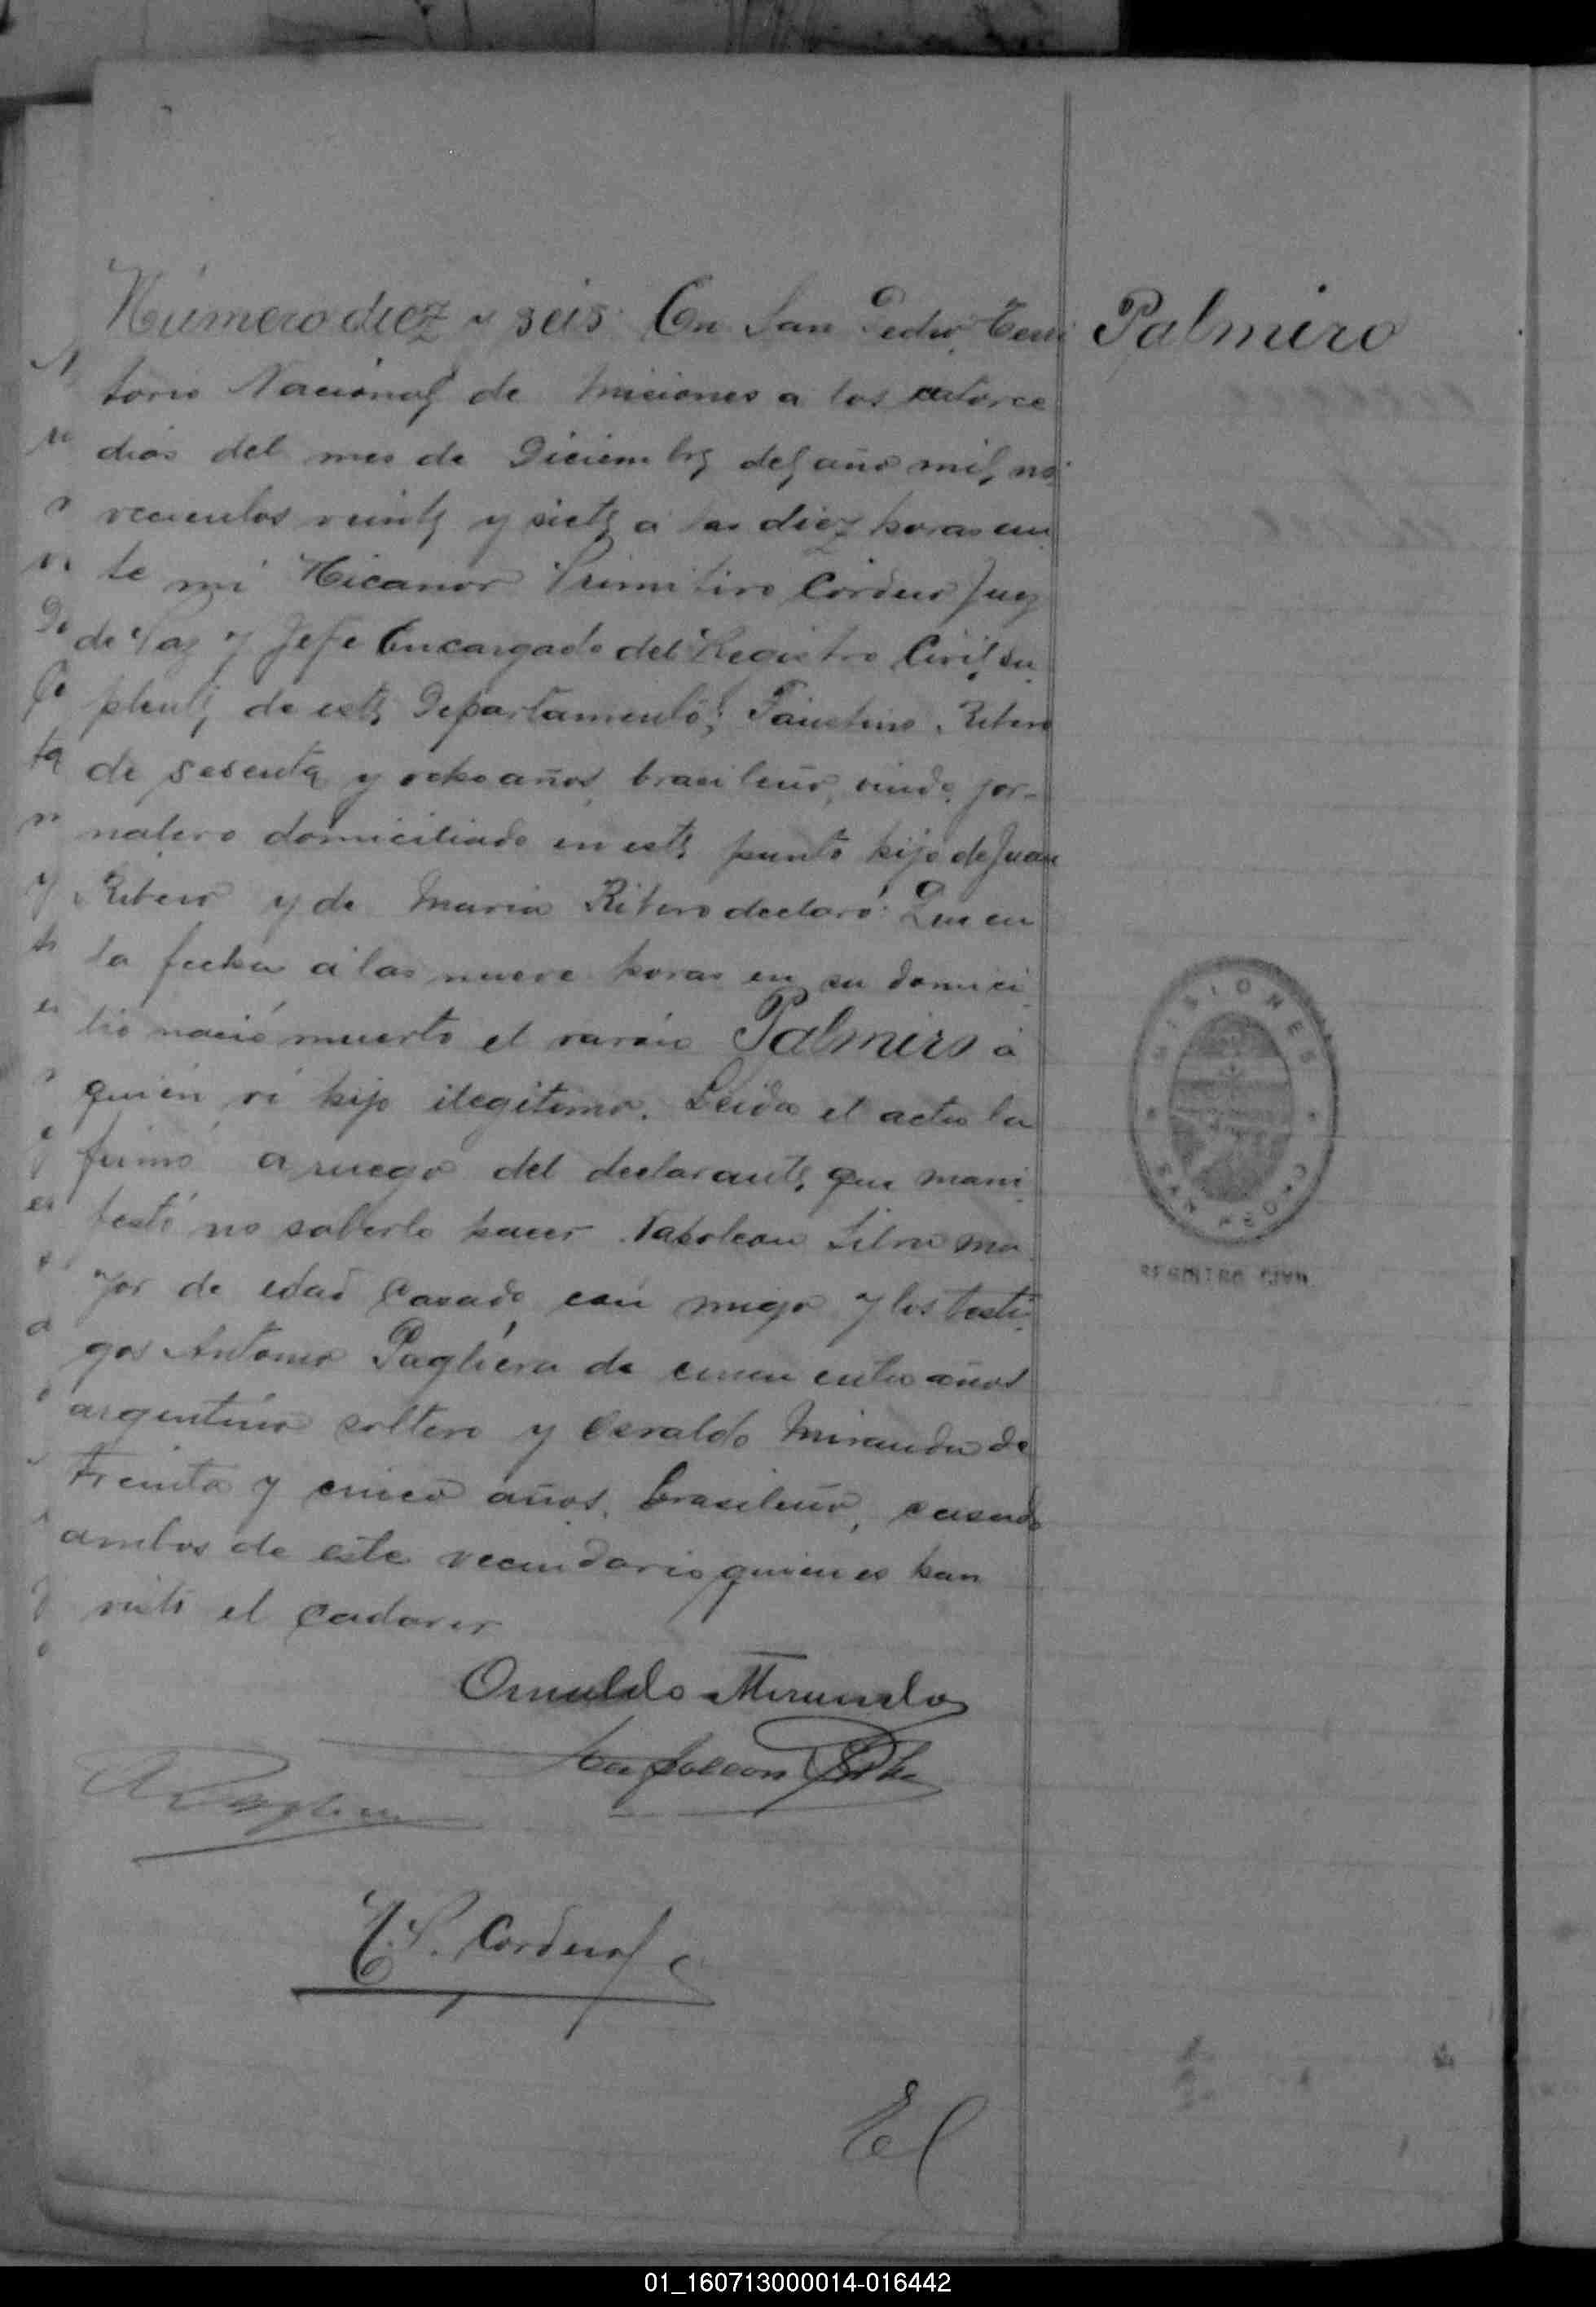 Número diez y seis. En San Pedro Terri
torio Nacional de Misiones a los catorce
dias del mes de Diciembre del año mil no
vecientos veinte y siete a las diez horas an
te mi Nicanor Primitivo Cordero Juez
de Paz y Jefe Encargado del Registro Civil su
plente de este Departamento; Faustino Ribero
de sesenta y ocho años, brasileño, viudo, jor-
nalero domiciliado en este punto hijo de Juan
Ribero y de Maria Ribero declaró: Que en
la fecha á las nueve horas en su domici
lio nació muerto el varón Palmiro á
quien vi hijo ilegitimo. Leida el acta la
firmó a ruego del declarante, que mani
festó no saberlo hacer Napoleon Silva ma
yor de edad casado con migo y los testi
gos Antonio Pagliera de cincuenta años
argentino soltero y Osvaldo Miranda de
treinta y cinco años, brasileño, casado
ambos de este vecindario quienes han
visto el cadaver
Palmiro
MISIONES
SAN PEDRO
REGISTRO CIVIL
Osvaldo Miranda
Napoleon Silva
A Pagliera
N. P. Cordero
El
01_160713000014-016442